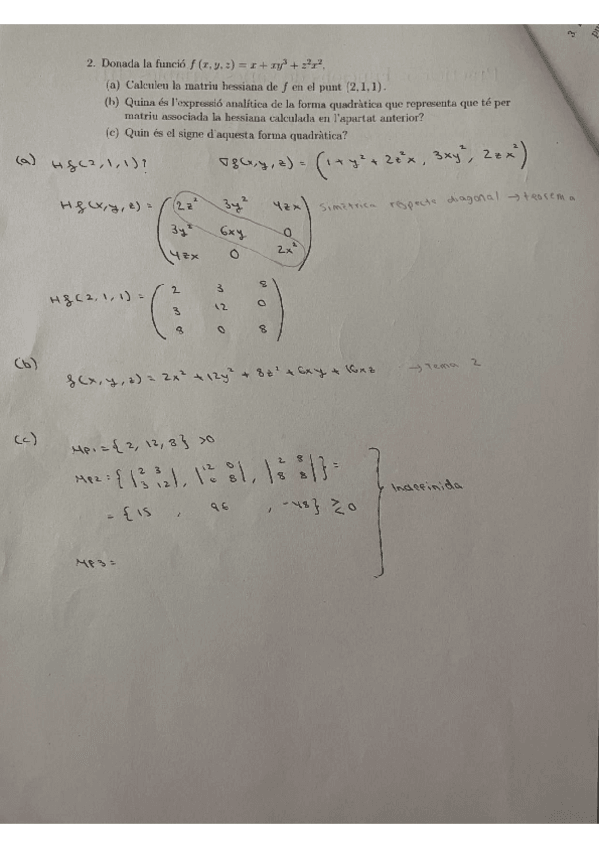 2. Donada la funció f(x, y, z) = x + xy³ + z²x²,
(a) Calculeu la matriu hessiana de f en el punt (2, 1, 1).
(b) Quina és l'expressió analítica de la forma quadràtica que representa que té per
matriu associada la hessiana calculada en l'apartat anterior?
(c) Quin és el signe d'aquesta forma quadràtica?
(a) Hf(2,1,1)? ∇f(x,y,z) = (1+y²+2z²x, 3xy², 2zx²)
Hf(x,y,z) = (2z² 3y² 4zx) Simètrica respecte diagonal → teorema
3y² 6xy 0
4zx 0 2x²
Hf(2,1,1) = (2 3 8)
3 12 0
8 0 8
(b) f(x,y,z) = 2x² + 12y² + 8z² + 6xy + 16xz → tema 2
(c) MP1 = {2, 12, 8} >0
MP2 = {|2 3|, |12 0|, |2 8|} =
3 12 0 8 8 8
= {15, 96, -48} ≷ 0
Indefinida
MP3 =